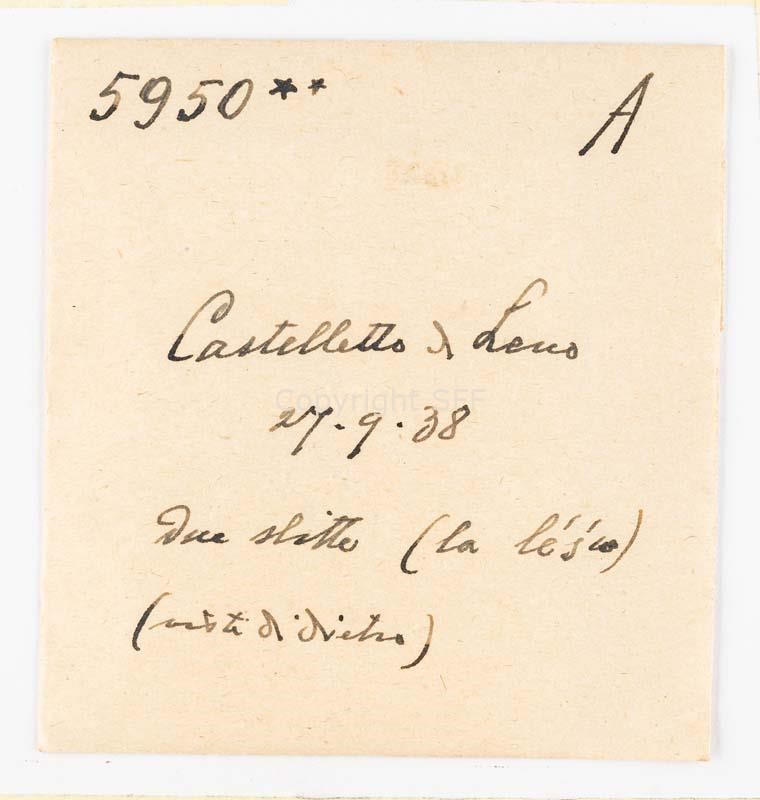 5950** A
Castelletto di Leno
Copyright SFF
27.9.38
due slitte (la
(visti di dietro)